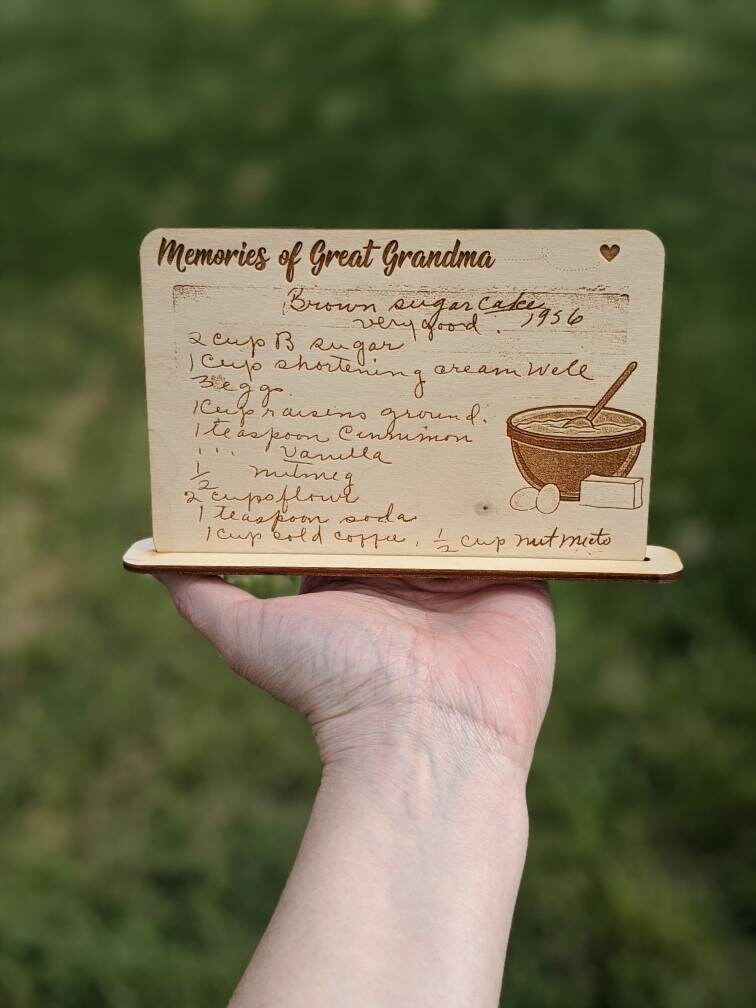 Memories of Great Grandma
Brown sugar cake 1956
very good.
2 cup B sugar
1 Cup shortening cream well
3 eggs.
1 Cup raisins ground.
1 teaspoon Cinnimon
1 " " Vanilla
1/2 nutmeg
2 cups flour
1 teaspoon soda
1 cup cold coffee, 1/2 cup nut meets